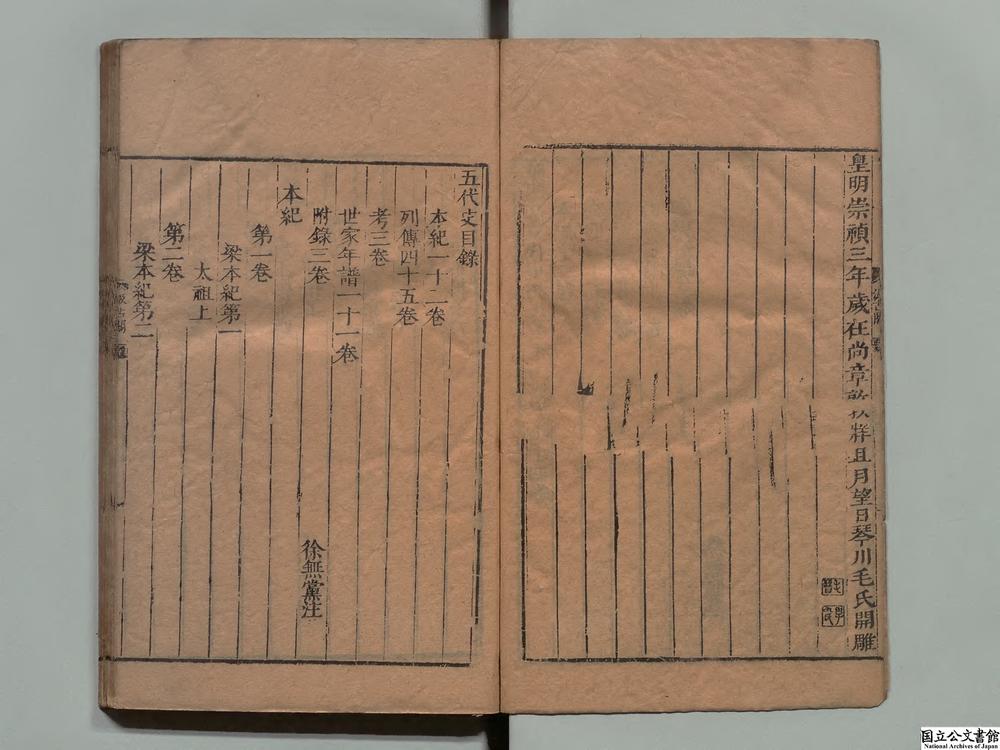 皇明崇禎三年歲在尚章敦牂且月望日琴川毛氏開雕
五代史目錄
本紀一十二卷
列傳四十五卷
考三卷
世家年譜一十一卷
附錄三卷
徐無黨注
本紀
第一卷
梁本紀第一
太祖上
第二卷
梁本紀第二
国立公文書館
National Archives of Japan